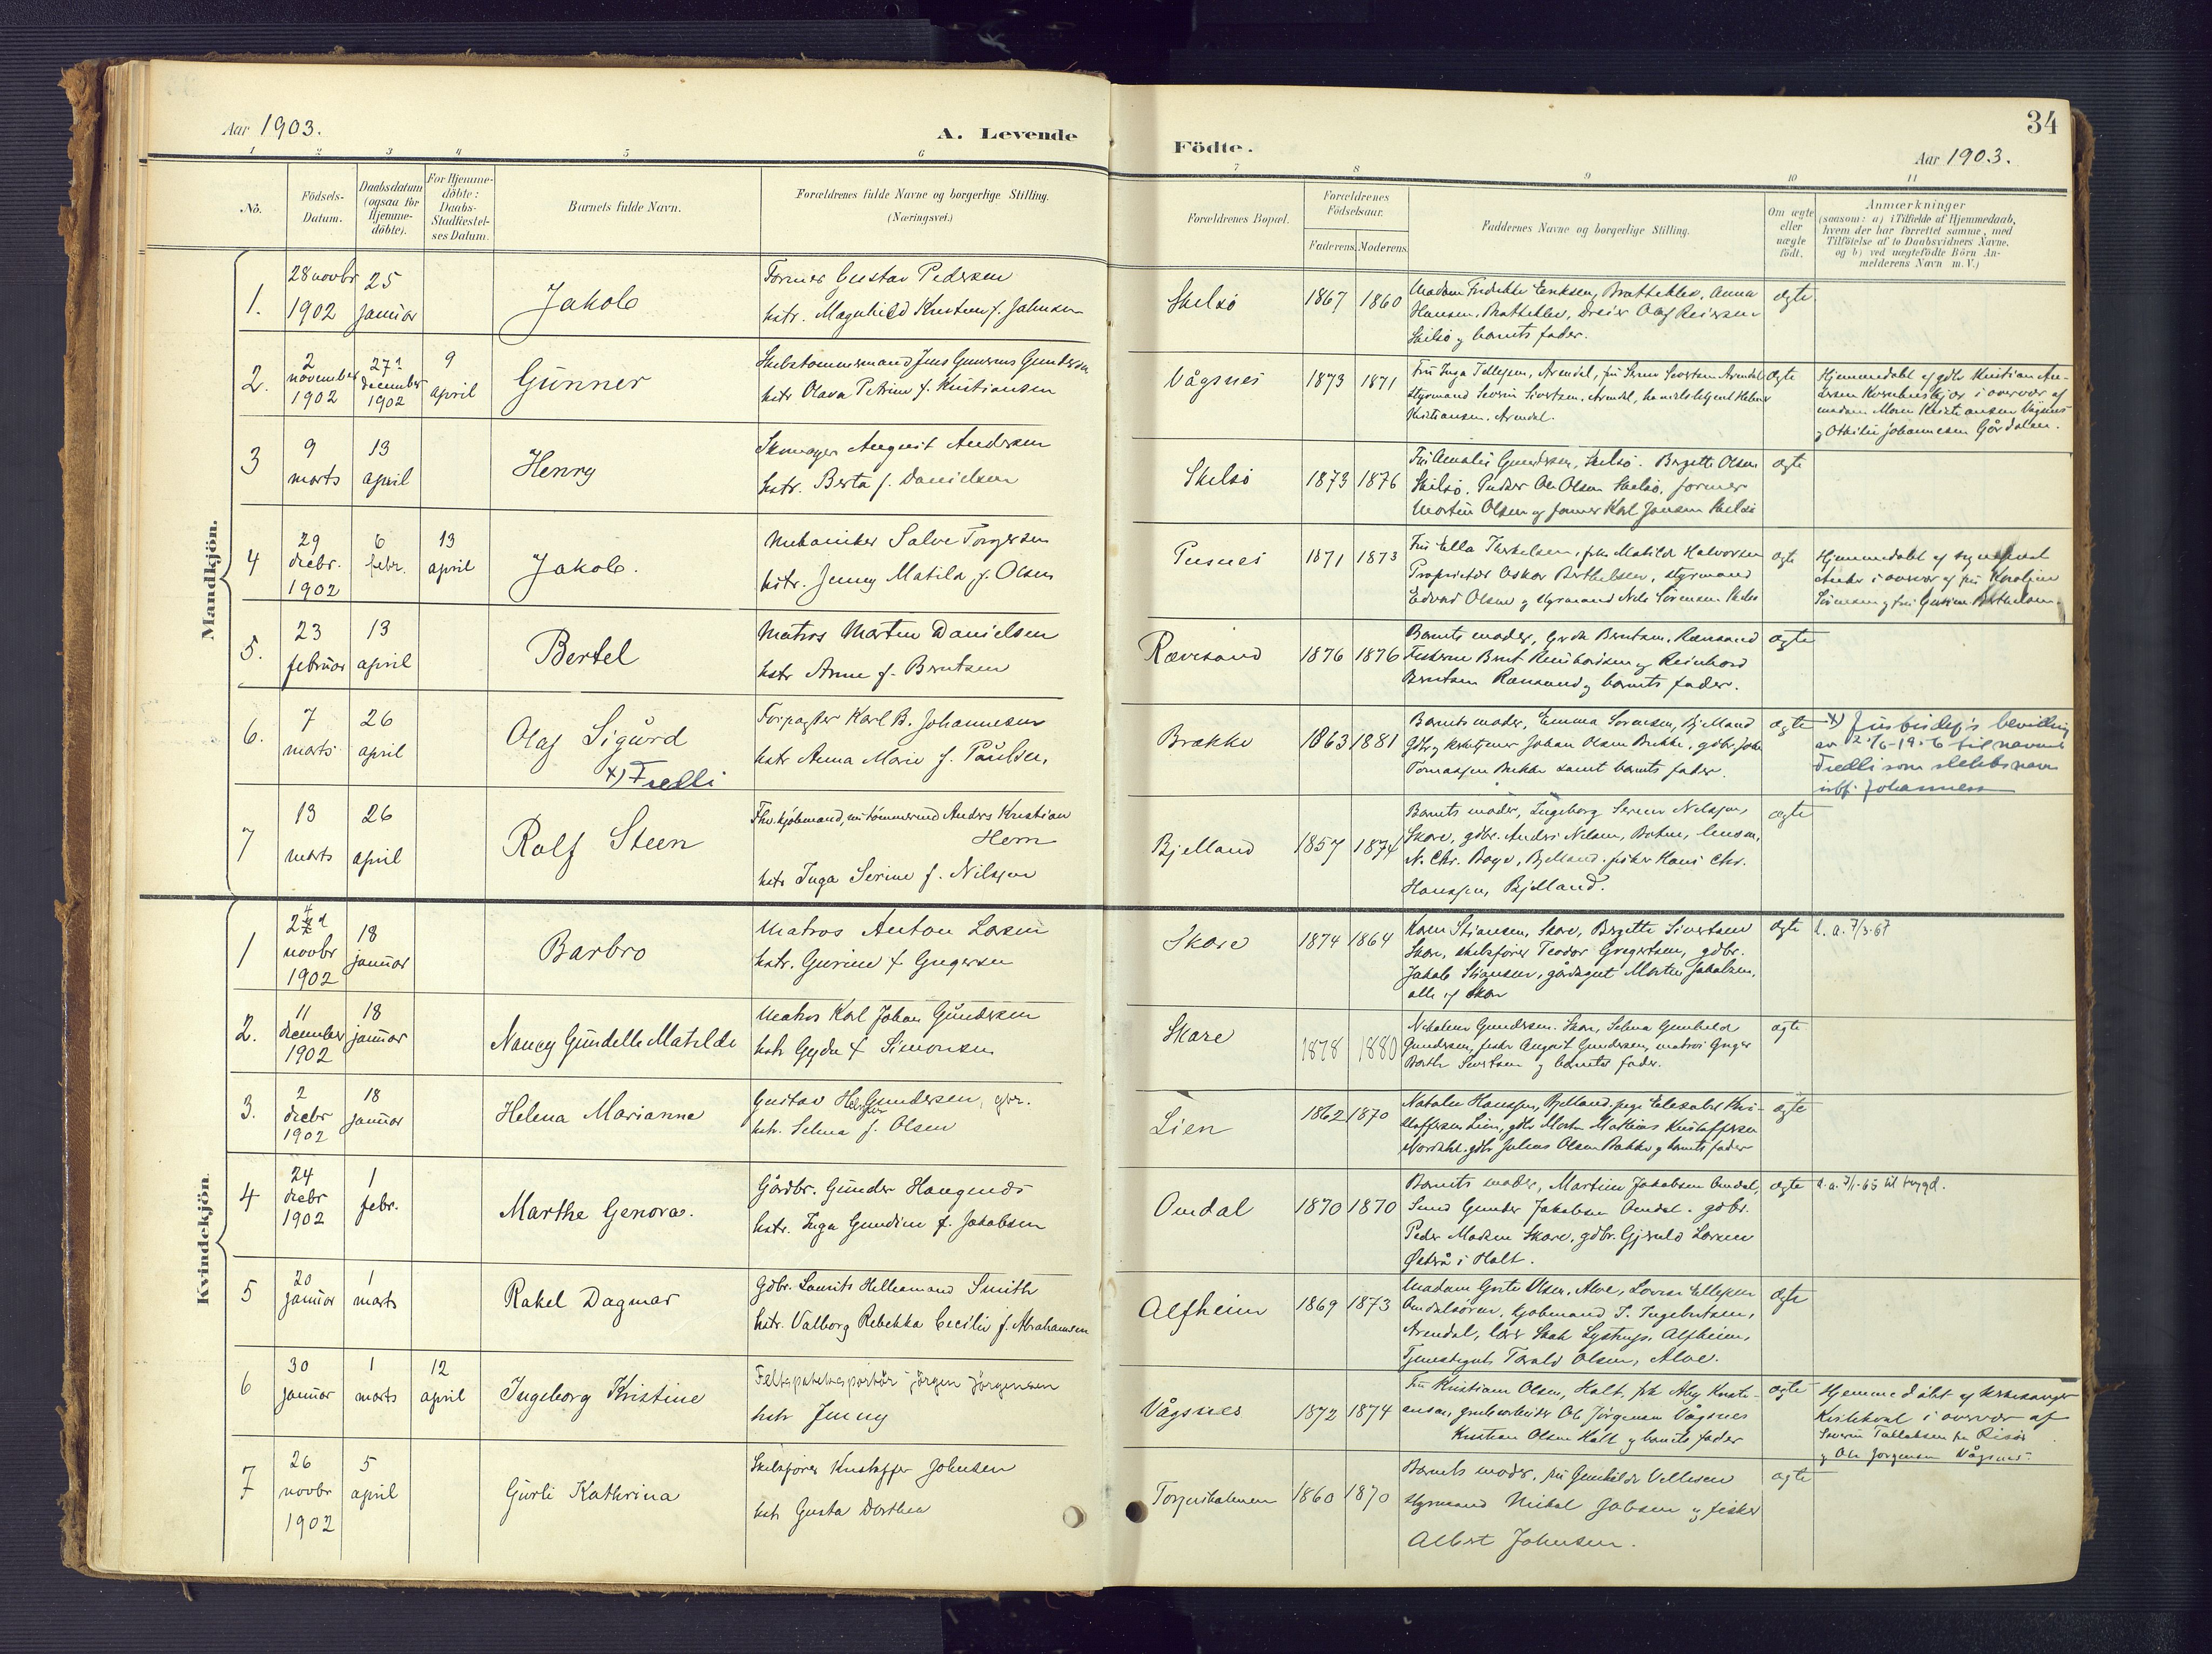 Aar 1903.
A. Levende
Födte.
34
Aar 1903.
1 2 3 4 5 6 7 8 9 10 11
No.
Födsels-
Datum.
Daabsdatum
(ogsaa for
Hjemme-
döbte).
For Hjemme-
döbte:
Daabs-
Stadfæstel-
ses Datum.
Barnets fulde Navn.
Forældrenes fulde Navne og borgerlige Stilling.
(Næringsvei.)
Forældrenes Bopæl.
Forældrenes
Födselsaar.
Faderens. Moderens.
Faddernes Navne og borgerlige Stilling.
Om ægte
eller
uægte
födt.
Anmærkninger
(saasom: a) i Tilfælde af Hjemmedaab,
hvem der har forrettet samme, med
Tilföielse af to Daabsvidners Navne,
og b) ved uægtefödte Börn An-
melderens Navn m. V.)
Mandkjön.
1.
28 novbr
1902
25
januar
Jakob
Former Gustav Pedersen
hstr. Magnhild Kristine f. Johnsen
Skilsö
1867 1860
Madam Fredrikke Eriksen, Brattekley, Anna
Hansen, Brattekley, Dreier Olaf Reiersen
Skilsö og barnets fader.
ægte
2.
2
november
1902
27?
december
1902
9
april
Gunner
Skibstømmermand Jens Gunerius Gundersen
hstr Olava Petrine f. Kristiansen
Vågsnes
1873 1871
Fru Inga Tellefsen, Arendal, fru Severine Sivertsen Arendal
Styrmand Severin Sivertsen, Arendal, handelsbetjent Helmer
Kristiansen, Arendal.
ægte
Hjemmedøbt af gdbr Kristian An-
dersen i overvær af
madam Maren Kristiansen Vågsnes
og Otilie Johannesen Gårdalen.
3
9
marts
13
april
Henry
Skomager August Andersen
hstr. Berta f. Danielsen
Skilsö
1873 1876
Fru Amalie Gundersen, Skilsö. Birgitte Olsen
Skilsö. Pudser Ole Olsen Skilsö, former
Martin Olsen og former Karl Jansen Skilsö
ægte
4
29
decbr.
1902
6
febr.
13
april
Jakob.
Mekaniker Salve Torgersen
hstr. Jenny Matilde f. Olsen
Pusnes
1871 1873
Fru Ella Terkelsen, frk Matilde Halvorsen
Proprietær Oskar Berthelsen, styrmand
Edvard Olsen og styrmand Nils Sørensen Skilsö
ægte
Hjemmedøbt af
i overvær af fru Karoline
Sörensen og fru Gusine Berthelsen.
5.
23
februar
13
april
Bertel
Matros Martin Danielsen
hstr Anne f. Berntsen
Rævesand
1876 1876
Barnets moder, Gerda Berntsen, Rævesand
Fiskerne Bernt Reinhardsen og Reinhard
Berntsen Rævesand og barnets fader.
ægte
6.
7
marts
26
april
Olaf Sigurd
x) Fredli
Forpagter Karl B. Johannesen
hstr Anna Marie f. Paulsen,
Brække
1863 1881
Barnets moder, Emma Sörensen, Bjelland
Gdbr og Johan Olsen Brække, gdbr. John
Tomassen Brække samt barnets fader.
ægte
x) Justisdep's bevilling
av 2/6-1926 til navnet
Fredli som slektsnavn
istf. Johannesen
7
13
marts
26
april
Rolf Steen
Fhv. kjöbmand, nu tömmermd Anders Kristian
Horn
hstr Inga Serine f. Nilssen
Bjelland
1857 1874
Barnets moder, Ingeborg Serine Nilssen,
Skare, gdbr. Anders Nilsen, Botne, lensm.
N. Chr. Boye, Bjelland. fisker Hans Chr.
Hanssen, Bjelland.
ægte
Kvindekjön.
1
24
novbr
1902
18
januar
Barbro
Matros Anton Larsen
hstr. Gurine f. Gregersen
Skare
1874 1864
Karen Stiansen, Skare, Birgitte Sivertsen
Skare, skibsfører Teodor Gregertsen, gdbr.
Jakob Stiansen, gårdsgut Martin Jakobsen,
alle af Skare
ægte
d. a. 7/3-67
2.
11
december
1902
18
januar
Nancy Gundelle Matilde
Matros Karl Johan Gundersen
hstr Gyda f. Simonsen
Skare
1878 1880
Nikoline Gundersen. Skare, Selma Gunhilde
Gundersen, fisker August Gundersen, matros
Sivertsen og barnets fader.
ægte
3.
2
decbr
1902
18
januar
Helena Marianne
Gustav Gundersen,
hstr. Selma f. Olsen
Lien
1862 1870
Natalie Hanssen, Bjelland, pige Elisabet Kri-
stoffersen Lien, gdbr Martin Mathias Kristoffersen
gdbr Julius Olsen Bakke og barnets fader
ægte
4
24
decbr
1902
1
febr.
Marthe Genora.
Gårdbr. Gunder Haagensen
hstr. Inga Gundine f. Jakobsen
Omdal
1870 1870
Barnets moder, Martine Jakobsen Omdal,
Gunder Jakobsen Omdal. gdbr.
Peder Madsen Skare, gdbr. Gjeruld Larsen
Østerå i Holt.
ægte
d. a. 7/1-65 til trygd.
5
20
januar
1
marts
Rakel Dagmar
Gdbr. Laurits Smith
hstr. Valborg Rebekka Cecilie f. Abrahamsen
Alfheim
1869 1873
Madam Grete Olsen, Alve, Lovise Ellefsen
Omdalsören, kjøbmand T. Ingebretsen,
Arendal, lærer Lystrup, Alfheim,
Tjenestegut Torvald Olsen, Alve.
ægte
6
30
januar
1
marts
12
april
Ingeborg Kristine
Feltspateksportör Jörgen Jörgensen
hstr Jenny
Vågsnes
1872 1874
Fru Kristiane Olsen, Holt, frk Aby Kristi-
ansen, grubearbeider Ole Jörgensen Vågsnes
Kristian Olsen Holt og barnets fader
ægte
Hjemmedøbt af kirkesanger
i overvær af
Severin fra Risör
og Ole Jörgensen Vågsnes.
7
26
novbr
1902
5
april
Gurli Kathrina
Skibsfører Kristoffer Johnsen
hstr Gusta Dorthea
Torjusholmen
1860 1870
Barnets moder, fru Gunhilde Vellesen
styrmand Mikal Jobsen og fisker
Albert Johnsen.
ægte